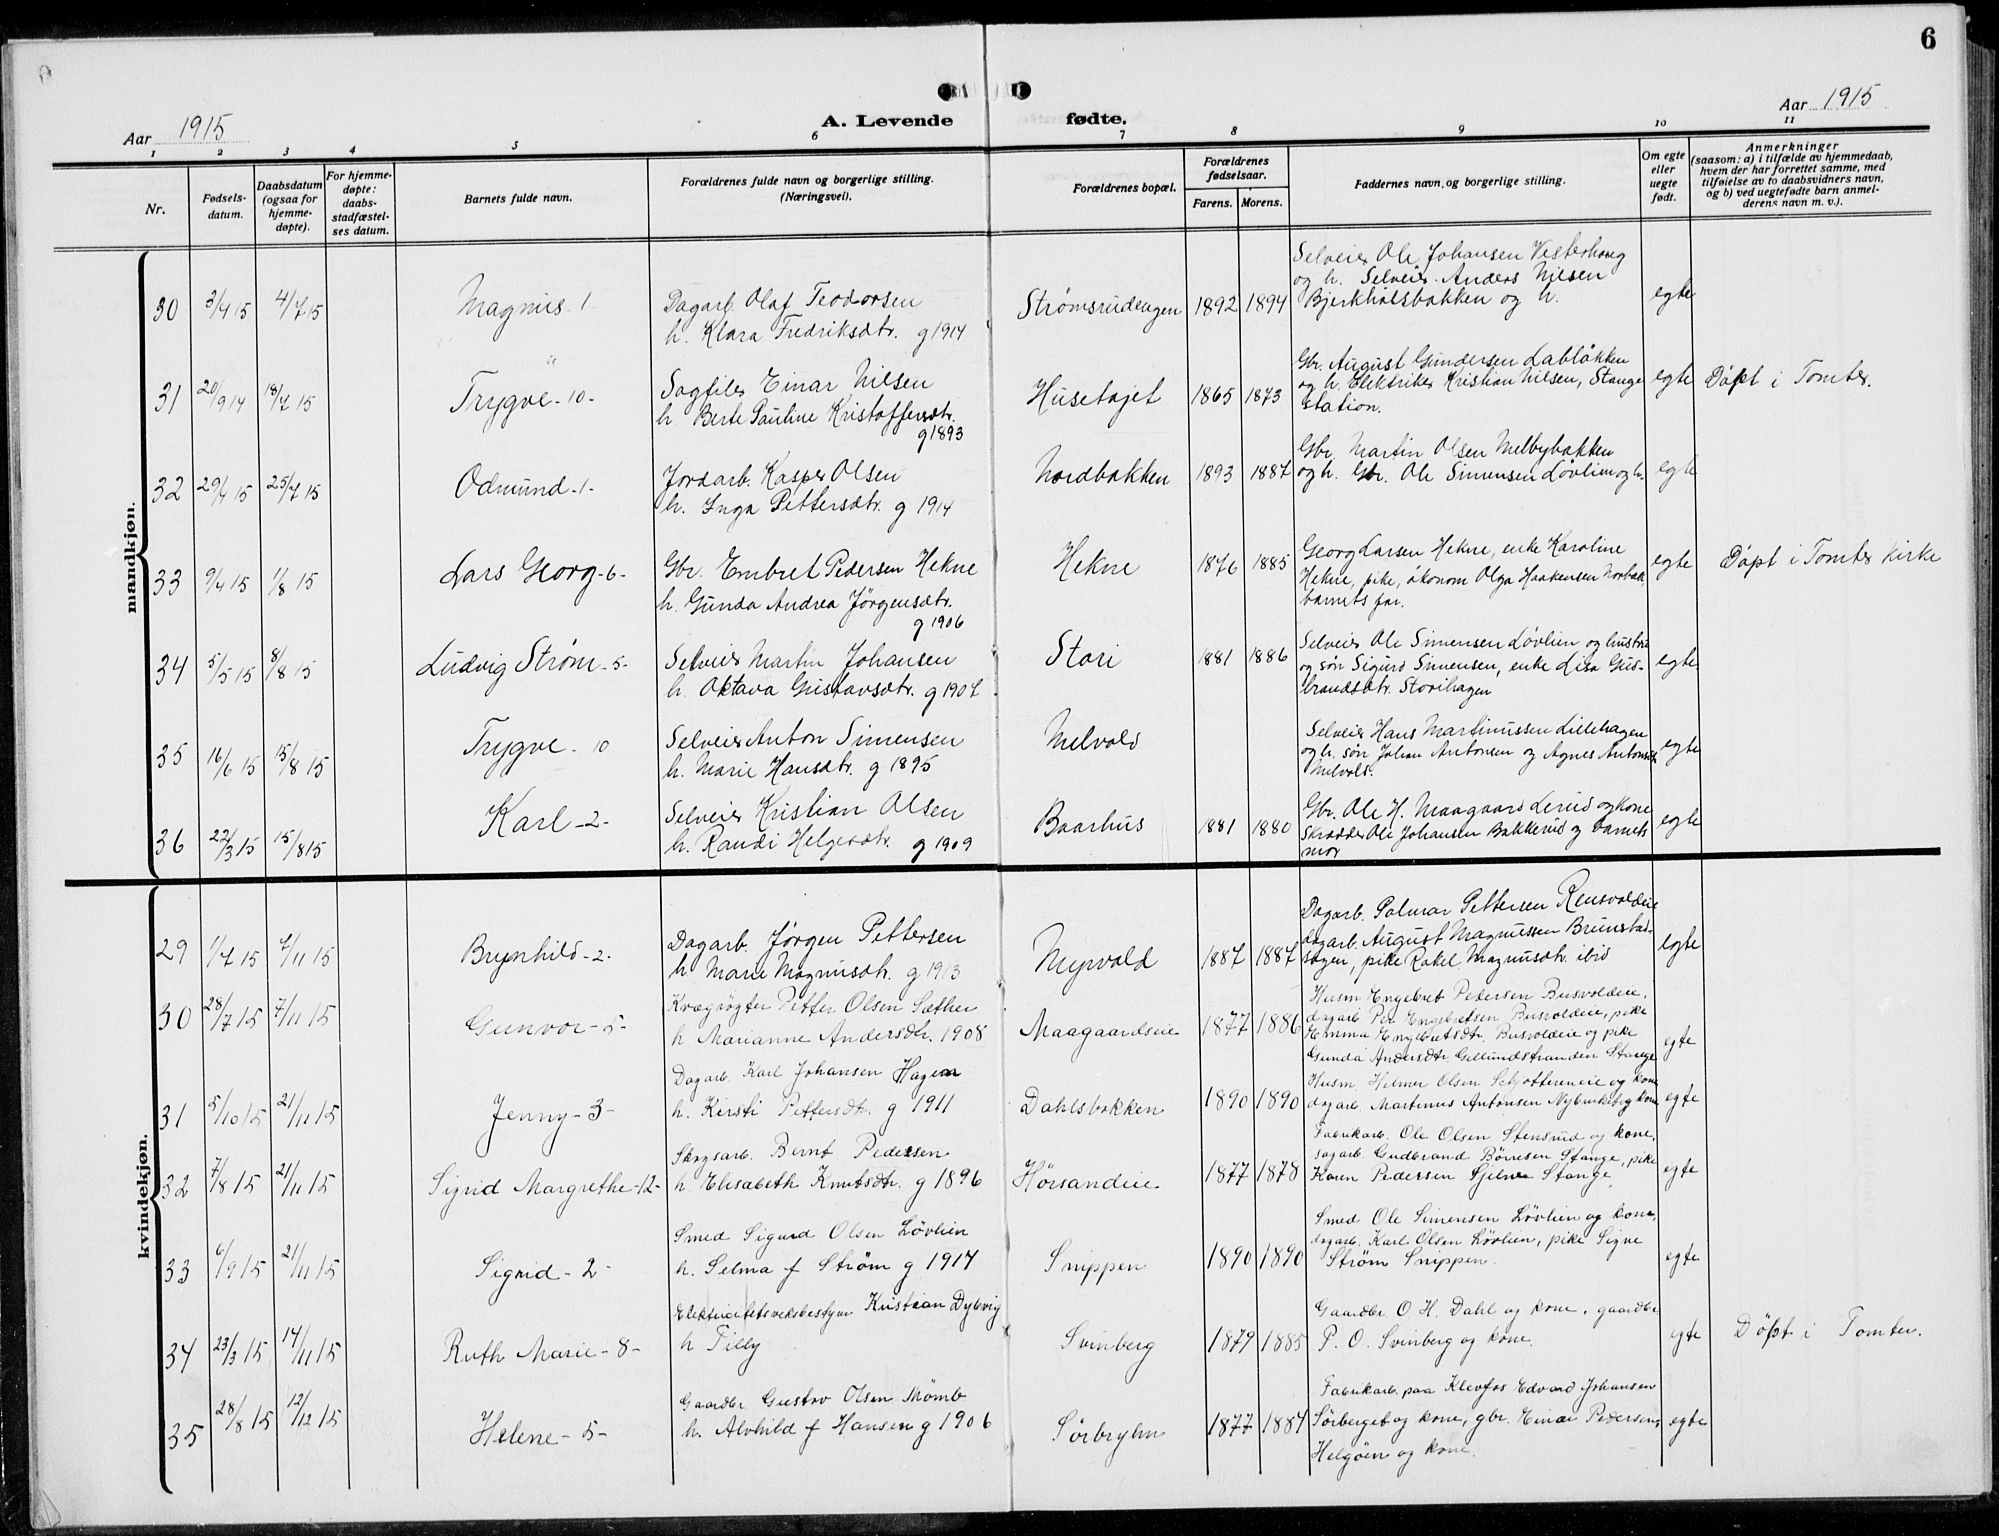 6
Aar 1915
A. Levende fødte.
Aar 1915
1 2 3 4 5 6 7 8 9 10 11
Nr.
Fødsels-
datum.
Daabsdatum
(ogsaa for
hjemme-
døpte).
For hjemme-
døpte:
daabs-
stadfæstel-
ses datum.
Barnets fulde navn.
Forældrenes fulde navn og borgerlige stilling.
(Næringsvei).
Forældrenes bopæl.
Forældrenes
fødselsaar.
Farens. Morens.
Faddernes navn og borgerlige stilling.
Om egte
eller
uegte
født.
Anmerkninger
(saasom: a) i tilfælde av hjemmedaab,
hvem der har forrettet samme, med
tilføielse av to daabsvidners navn,
og b) ved uegtefødte barn anmel-
derens navn m. v.).
mandkjøn.
30 3/4 15 4/7 15 Magnus - 1 -
Dagarb. Olaf Teodorsen
h. Klara Fredriksdtr. g 1914
Strømsrudengen 1892 1894
Selveier Ole Johansen Vesterhaug
og h. Selveier Anders Nilsen
Bjerkholsbakken og h.
egte
31 20/9 14 18/7 15 Trygve - 10 -
Sagfiler Einar Nilsen
h Berte Pauline Kristoffersdtr.
g 1893
Husetajet 1865 1873
Gbr. August Gundersen Labløkken
og h. Elektriker Kristian Nilsen, Stange
station.
egte Døpt i Tomter.
32 29/4 15 25/7 15 Odmund - 1 -
Jordarb. Kasper Olsen
h. Inga Pettersdtr. g 1914
Nordbakken 1893 1887
Gbr. Martin Olsen Melbybakken
og h. Gbr. Ole Simensen Løvlien og h.
egte
33 9/4 15 1/8 15 Lars Georg - 6 -
Gbr. Embret Pedersen Hekne
h. Gunda Andrea Jørgensdtr.
g 1906
Hekne 1876 1885
Georg Larsen Hekne, enke Karoline
Hekne, pike, økonom Olga Haakensen
barnets far.
egte Døpt i Tomter kirke
34 5/5 15 8/8 15 Ludvig Strøm - 5 -
Selveier Martin Johansen
h. Oktava Gustavsdtr. g 1907
Stori 1881 1886
Selveier Ole Simensen Løvlien og hustru
og søn Sigurd Simensen, enke Lisa Gud-
brandsdtr. Storihagen
egte
35 16/6 15 15/8 15 Trygve - 10
Selveier Anton Simensen
h. Marie Hansdtr. g 1895
Melvold
Selveier Hans Martinussen Lillehagen
og h. søn Johan Antonsen og Agnes Antonsdtr
Melvold.
egte
36 22/3 15 15/8 15 Karl - 2 -
Selveier Kristian Olsen
h. Randi Helgesdtr. g 1909
Baarhus 1881 1880
Gbr. Ole H. Maagaard Lerud og kone
skrædder Ole Johansen Bakkerud og barnets
mor
egte
kvindekjøn.
29 1/7 15 7/11 15 Brynhild - 2 -
Dagarb. Jørgen Pettersen
h. Marie Magnusdtr. g 1913
Myrvold 1887 1887
Dagarb. Palmar Pettersen Rensvoldeie
dagarb. August Magnussen Brunstad-
pike Rakel Magnusdtr. ibid
egte
30 28/7 15 7/11 15 Gunvor - 5 -
Kvægrøgter Petter Olsen Sæther
h Marianne Andersdtr. 1908
Maagaardseie 1877 1886
Husm Engebret Pedersen Busvoldeie,
dagarb Per Engebretsen Busvoldeie, pike
Emma Engebretsdtr. Busvoldeie og pike
Gunda Andersdtr. Gillundstranden Stange
egte
31 5/10 15 21/11 15 Jenny - 3 -
Dagarb. Karl Johansen Hagen
h. Kirsti Pettersdtr. g 1911
Dahlsbakken 1890 1890
Husm. Helmer Olsen Schøttereneie og kone
dagarb. Martinus Antonsen og kone
egte
32 7/8 15 21/11 15 Sigrid Margrethe - 12 -
Skogsarb. Bernt Pedersen
h. Elisabeth Knutsdtr. g 1896
Hørsandeie 1877 1878
Fabrikarb. Ole Olsen Stensrud og kone,
sagarb Gudbrand Børresen Stange, pike
Karen Pedersen Stange
egte
33 6/9 15 21/11 15 Sigrid - 2 -
Smed Sigurd Olsen Løvlien
h. Selma f Strøm g 1914
Snippen 1890 1890
Smed Ole Simensen Løvlien og kone,
dagarb. Karl Olsen Løvlien, pike Signe
Strøm Snippen.
egte
34 23/3 15 14/11 15 Ruth Marie - 8 -
Elektricitetsverksbestyrer Kristian Dybvig
h Tilly
Svinberg 1879 1885
Gaardbr O. H. Dahl og kone, gaardbr
P. O. Svinberg og kone.
egte Døpt i Tomter.
35 28/8 15 12/12 15 Helene - 5 -
Gaardbr Gustav Olsen Mømb
h. Alvhild f Hansen g 1906
Sørbryhn 1877 1884
Fabrikarb. paa Klevfos Edvard Johansen
Sørberget og kone, gbr. Einar Pedersen,
Helgøen og kone.
egte